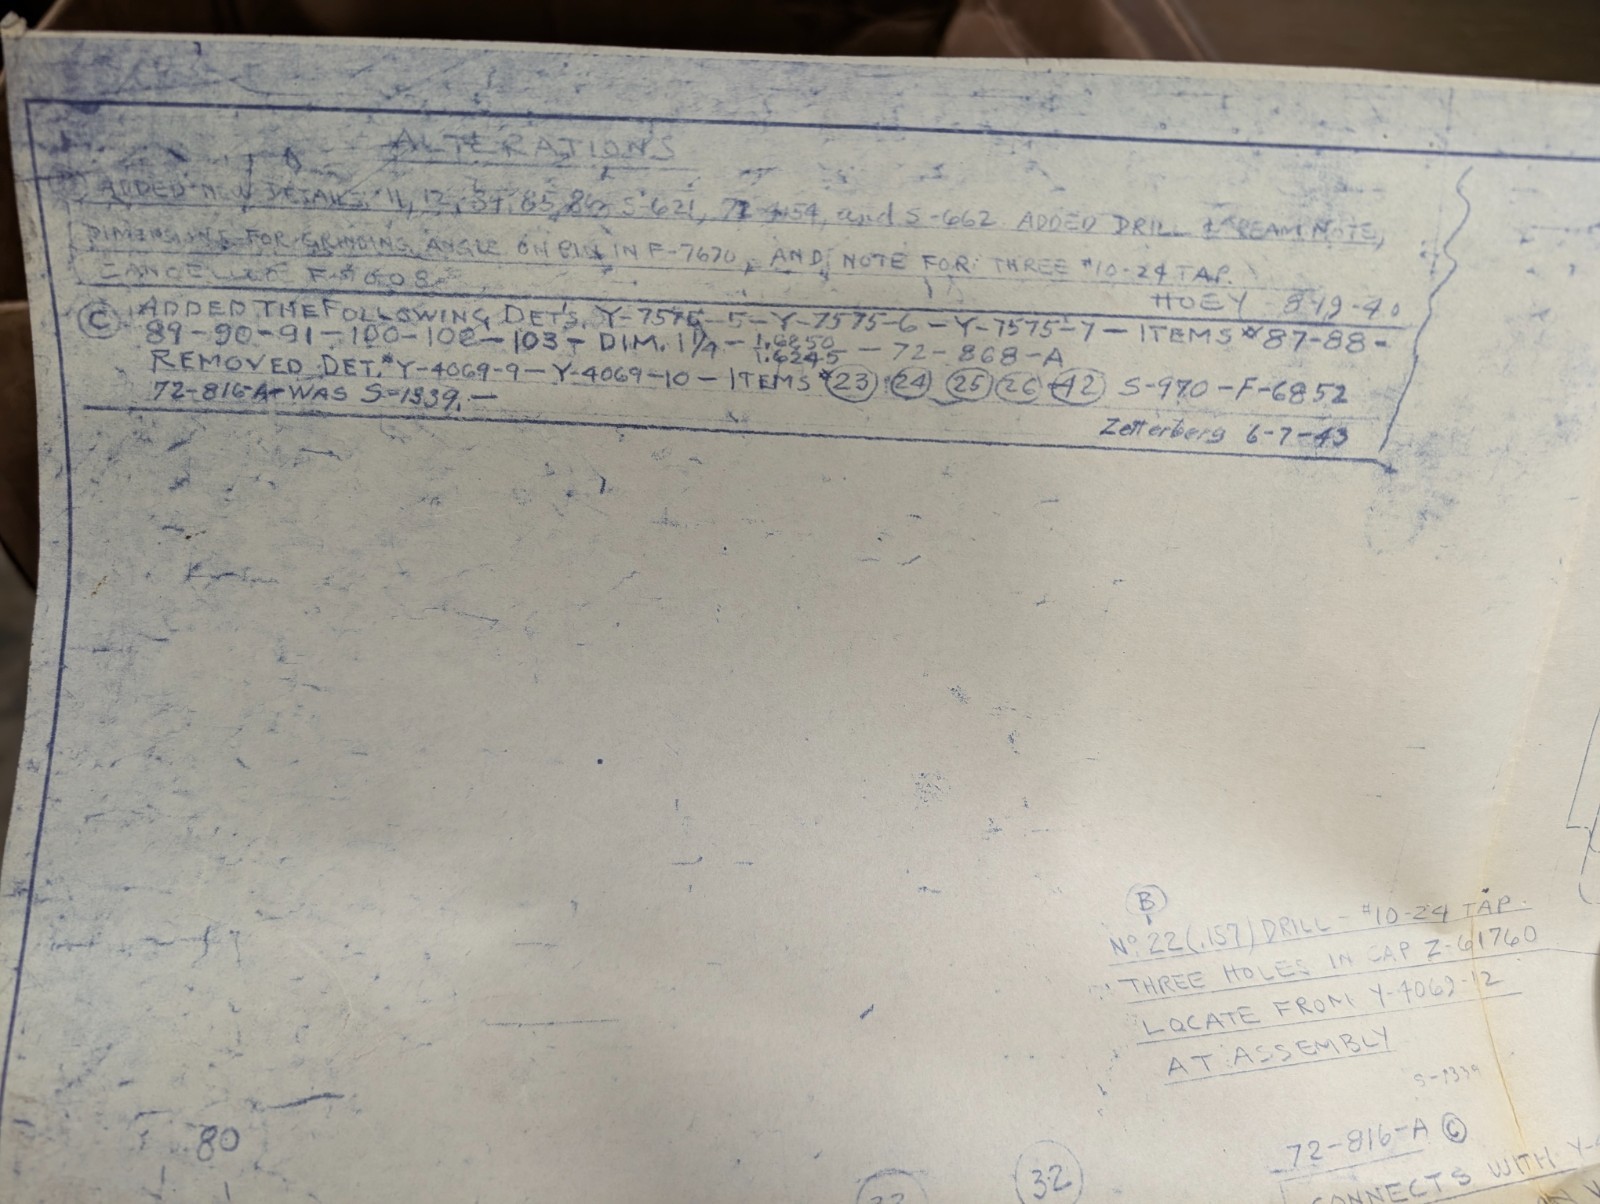 ALTERATIONS
ADDED NEW DETAILS 11, 12, 34, 85, 86, S-621, and S-662. ADDED DRILL & REAM NOTE,
DIMENSIONS FOR GRINDING ANGLE ON PIN IN F-7670, AND NOTE FOR THREE #10-24 TAP.
CANCELLED
HOEY
C ADDED THE FOLLOWING DET'S. Y-7575-5-Y-7575-6-Y-7575-7-ITEMS #87-88-
89-90-91-100-102-103-DIM. 1 1/4 - 1.6250 / 1.6245 - 72-868-A
REMOVED DET. #Y-4069-9-Y-4069-10-ITEMS #23 24 25 26 42 S-970-F-6852
72-816-A-WAS S-1339.-
Zetterberg 6-7-43
B
No. 22 (.157) DRILL - #10-24 TAP.
THREE HOLES IN CAP Z-61760
LOCATE FROM Y-4069-12
AT ASSEMBLY
S-1339
72-816-A C
CONNECTS WITH
80
32